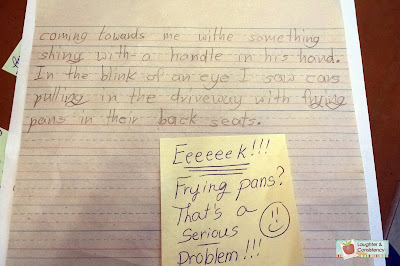 coming towards me withe something
shiny with a handle in his hand.
In the blink of an eye I saw cars
pulling in the driveway with frying
pans in their back seats.
Eeeeeek!!!
Frying pans?
That's a
serious
Problem!!!
Laughter &
Consistency